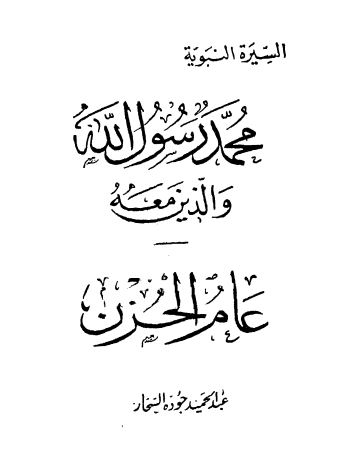 السِّيرَة النَّبَوِيَّة
مُحَمَّد رَسُولُ اللَّهِ
وَالَّذِينَ مَعَهُ
عَامُ الحُزْن
عبد الحميد جودة السحار